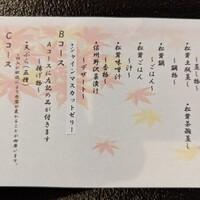 ～蒸し物～
・松茸茶碗蒸し
～鍋物～
・松茸土瓶蒸し
・松茸鍋
～ごはん～
・松茸ごはん
～汁～
・松茸味噌汁
～香物～
・信州野沢菜漬け
～デザート～
・シャインマスカットゼリー
Bコース
Aコースに左記の品が付きます
～揚げ物～
・天ぷら五種
Cコース